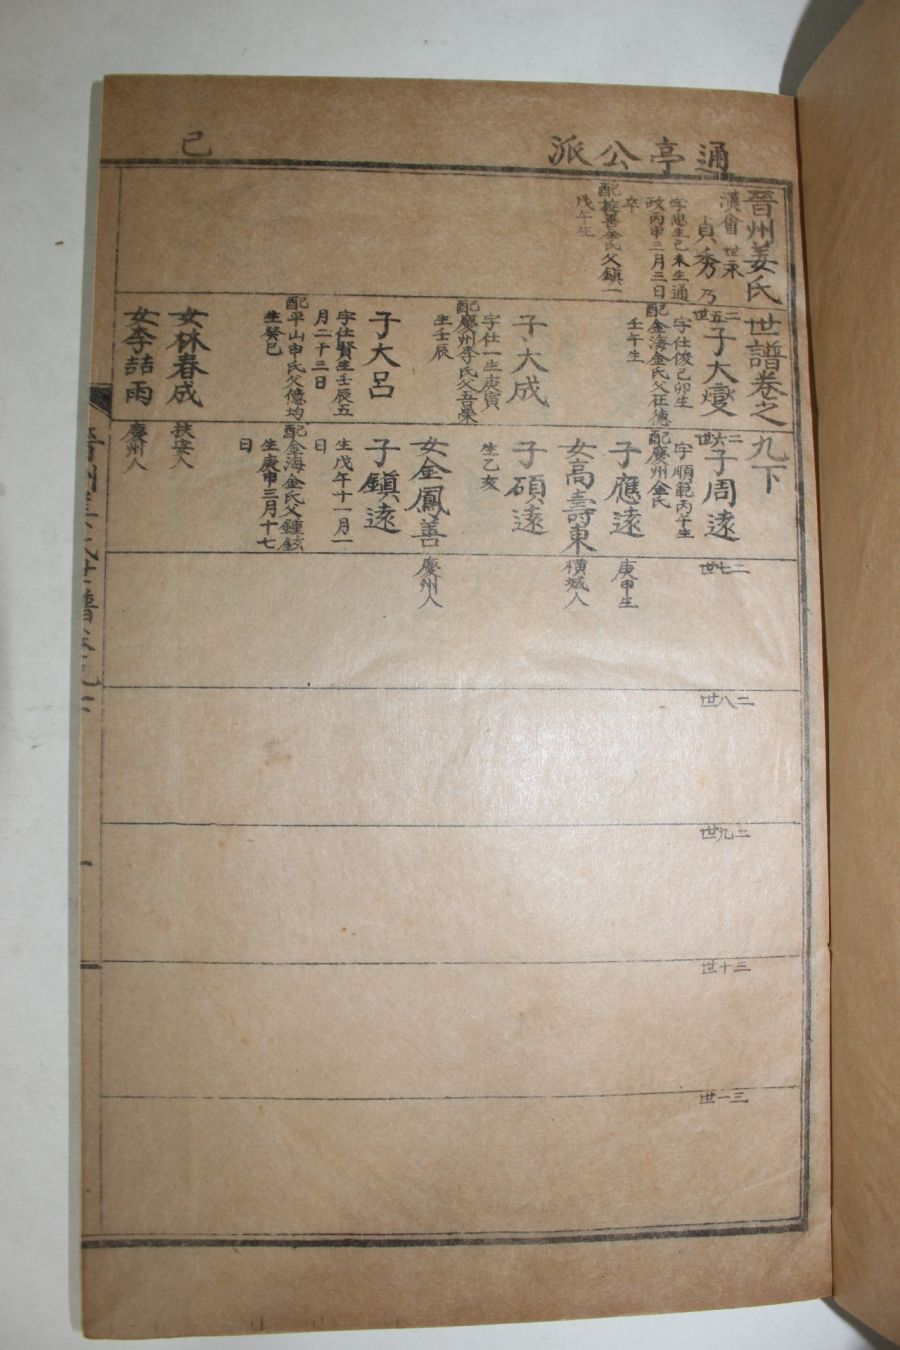 通亭公派
己
晉州姜氏世譜卷之九下
漢會 世永
貞秀 乃
字思生己未生通
政丙申三月三日
卒
金氏父鎮一
戊午生
二五世
子大燮
字仕俊己卯生
配金海金氏父在德
壬午生
子大成
字仕一生庚寅
配慶州李氏父吾榮
生壬辰
子大呂
字仕賢生壬辰五
月二十三日
配平山申氏父億均
生癸巳
女林春成
扶安人
女李喆雨
慶州人
二六世
子周遠
字順範丙午生
配慶州金氏
子應遠
庚申生
女高壽東
橫城人
子碩遠
生乙亥
女金鳳善
慶州人
子鎭遠
生戊午十一月一
日
配金海金氏父鍾鉉
生庚申三月十七
日
二七世
二八世
二九世
三十世
三一世
一